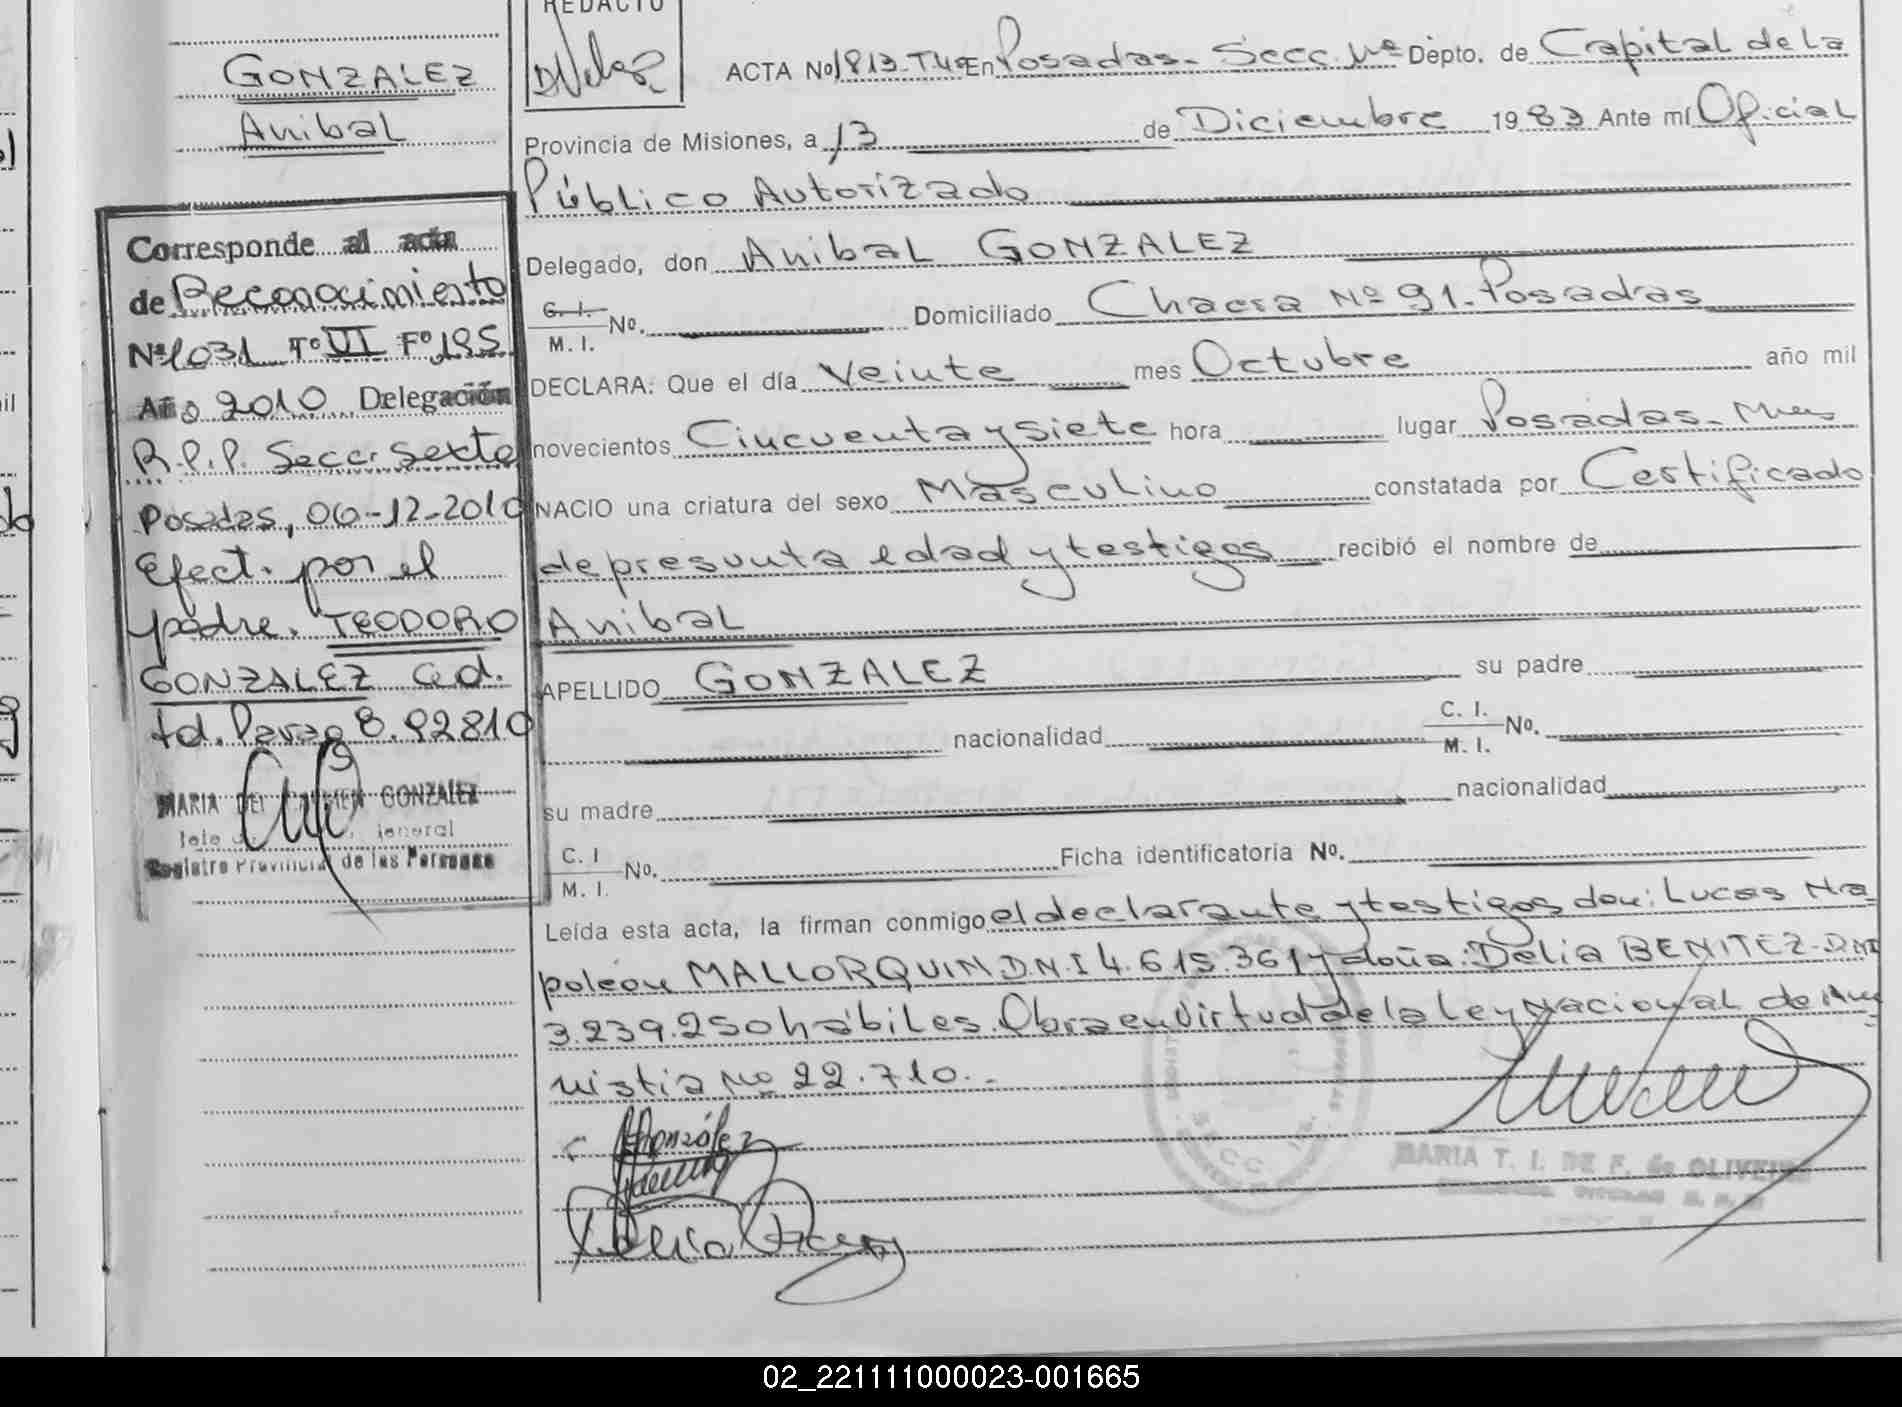 GONZALEZ
Anibal
Corresponde al acta
de Reconocimiento
Nº 1031 Tº VI Fº 195
Año 2010 Delegación
R.P.P. Secc. Sexta
Posadas, 06-12-2010
Efect. por el
padre. TEODORO
GONZALEZ Ced.
Id. Parag 8.92810
MARIA DEL CARMEN GONZALEZ
Registro Provincial de las Personas
REDACTO
ACTA Nº 1813-Tº4º En Posadas- Secc. 1ª Dépto. de Capital de la
Provincia de Misiones, a 13 de Diciembre 1983 Ante mí Oficial
Público Autorizado
Delegado, don Anibal GONZALEZ
C. I.
M. I. Nº. Domiciliado Chacra Nº 91-Posadas
DECLARA: Que el día Veinte mes Octubre año mil
novecientos Cincuenta y Siete hora lugar Posadas- Mnes
NACIO una criatura del sexo Masculino constatada por Certificado
de presunta edad y testigos recibió el nombre de
Anibal
APELLIDO GONZALEZ su padre
nacionalidad C. I.
M. I. Nº.
su madre nacionalidad
C. I
M. I. Nº. Ficha identificatoria Nº.
Leída esta acta, la firman conmigo el declarante y testigos don: Lucas Na-
poleón MALLORQUIN D.N.I 4.615.361 y doña: Delia BENITEZ-DNI
3.239.250 hábiles. Obra en Virtud de la Ley Nacional de Am-
nistia Nº 22.710.-
AGonzález
MARIA T. I. DE F. de OLIVEIRA
02_221111000023-001665